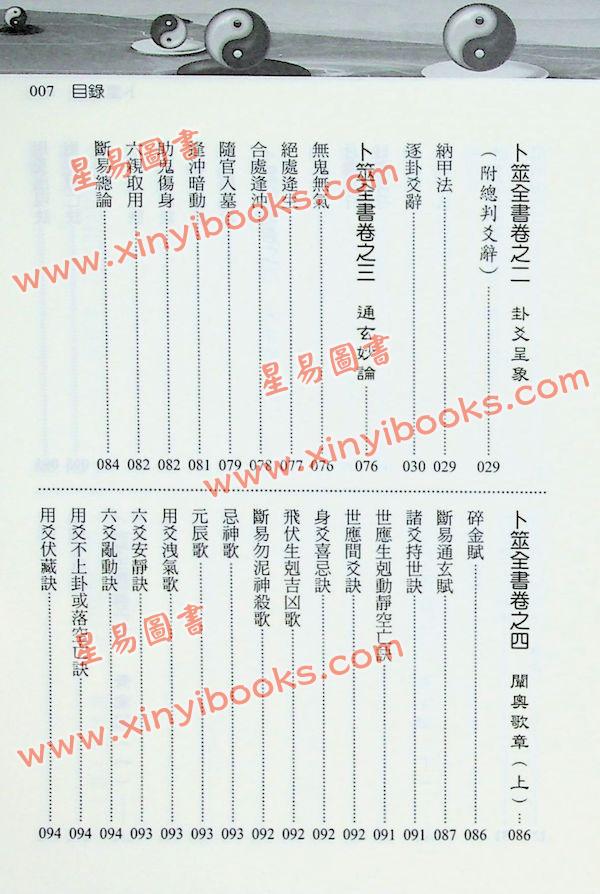 007 目錄
卜筮全書卷之二 卦爻呈象
（附總判爻辭）……029
納甲法……029
逐卦爻辭……030
卜筮全書卷之三 通玄妙論……076
無鬼無氣……076
絕處逢生……077
合處逢沖……078
隨官入墓……079
逢沖暗動……081
助鬼傷身……082
六親取用……082
斷易總論……084
卜筮全書卷之四 闡奧歌章（上）……086
碎金賦……086
斷易通玄賦……087
諸爻持世訣……091
世應生剋動靜空亡訣……091
世應間爻訣……092
身爻喜忌訣……092
飛伏生剋吉凶歌……092
斷易勿泥神殺歌……092
忌神歌……093
元辰歌……093
用爻洩氣歌……093
六爻安靜訣……093
六爻亂動訣……094
用爻不上卦或落空亡訣……094
用爻伏藏訣……094
星易圖書
www.xinyibooks.com
星易圖書
www.xinyibooks.com
星易圖書
www.xinyibooks.com